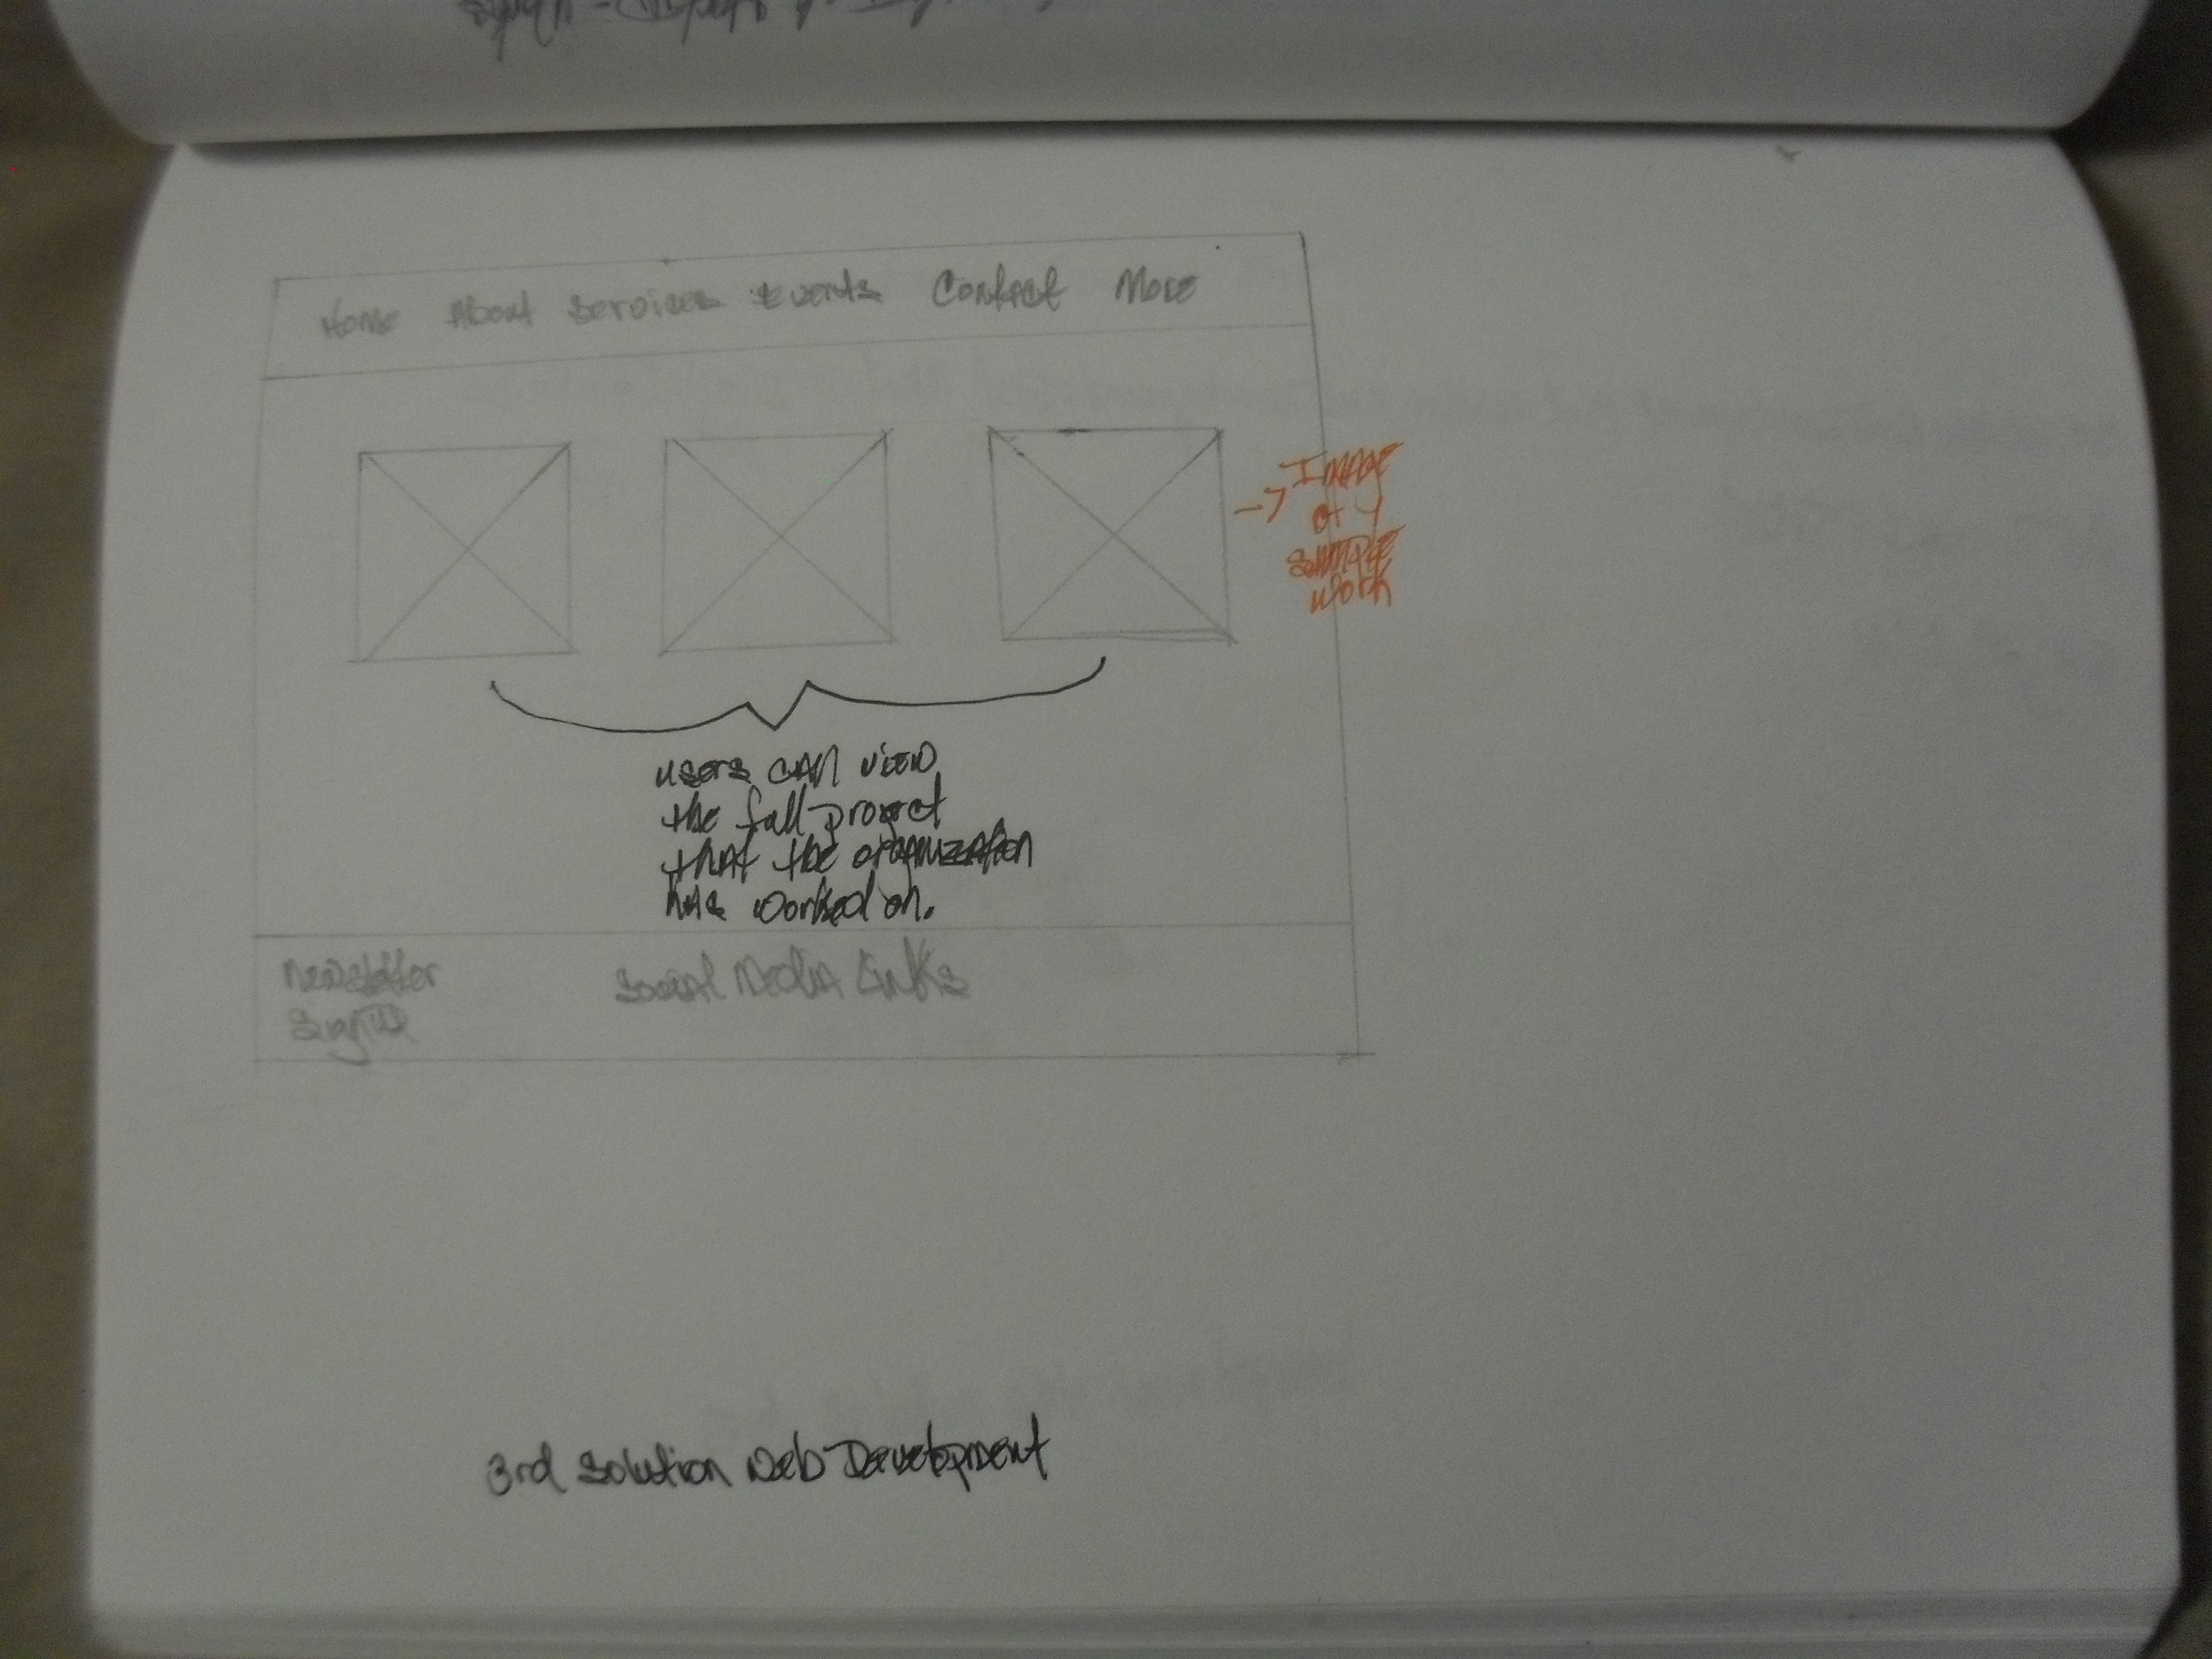 Home About Services Events Contact More
Image
of
sample
work
users can view
the full project
that the organization
has worked on.
Newsletter
Signup
Social Media Links
3rd Solution Web Development